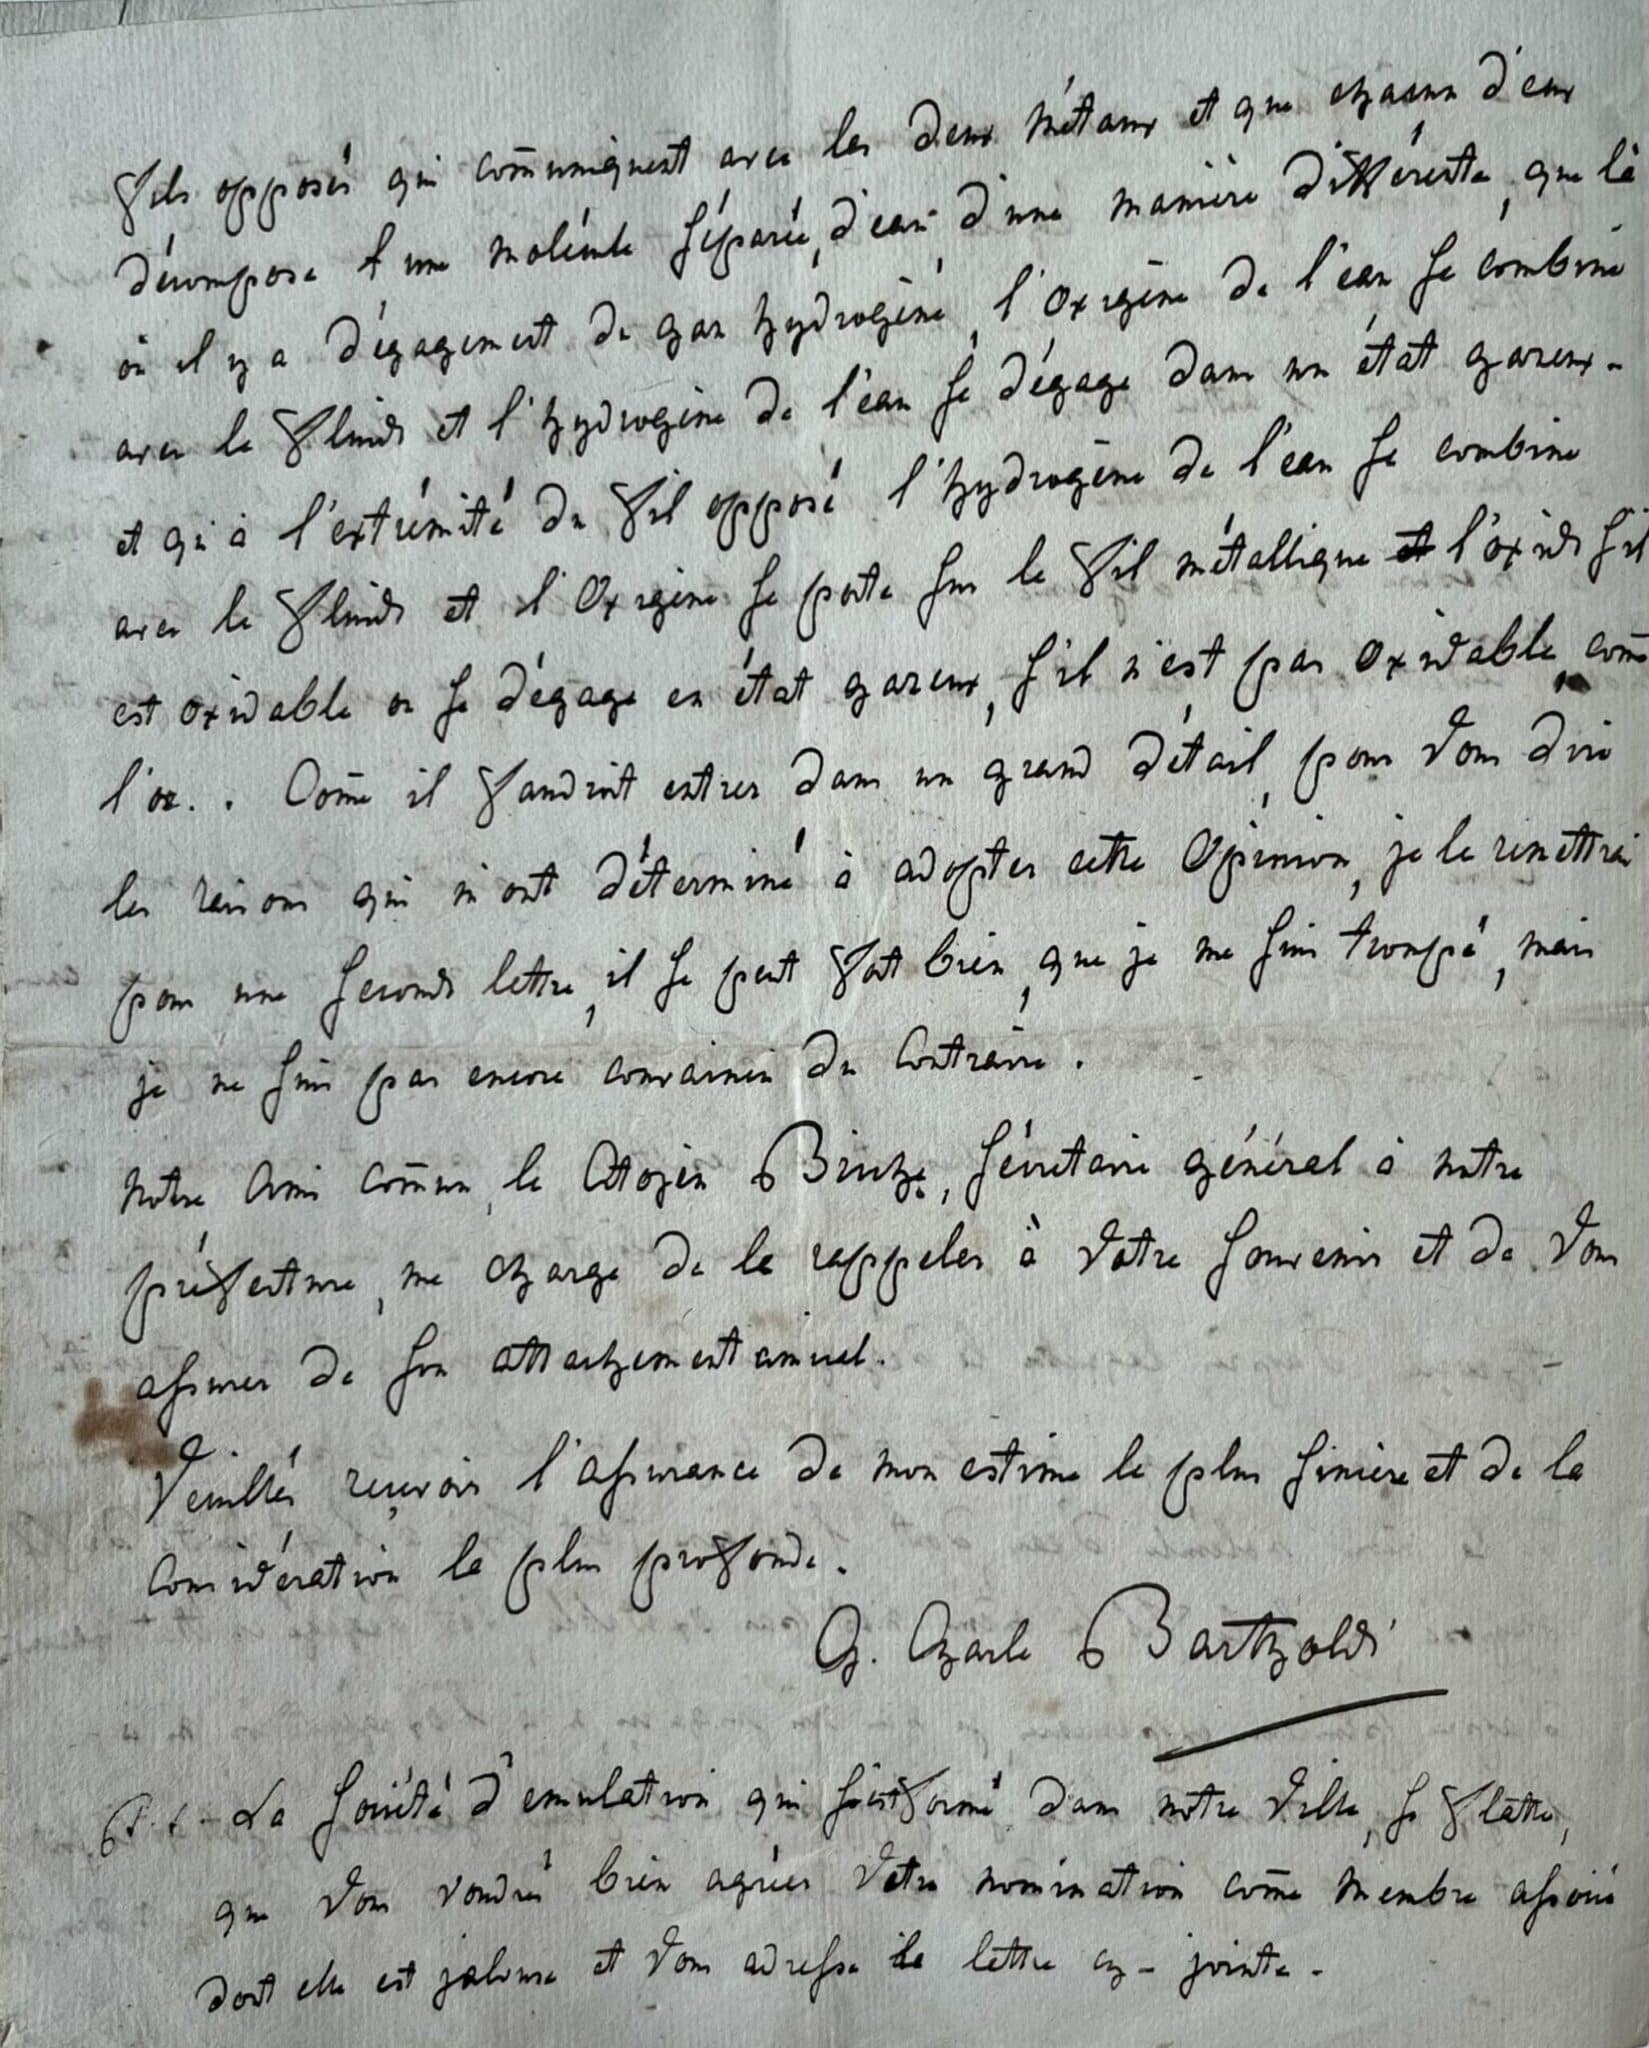 fils opposés qui com̄uniquent avec les deux métaux et que chacun d'eux
décompose une molécule séparée, d'eau d'une manière différente, que là
où il y a dégagement de gaz hydrogéne, l'oxigène de l'eau se combine
avec le fluide et l'hydrogène de l'eau se dégage dans un état gazeux -
et qu'à l'extrémité du fil opposé l'hydrogène de l'eau se combine
avec le fluide et l'Oxigène se porte sur le fil métallique et l'oxide s'il
est oxidable ou se dégage en état gazeux, s'il n'est pas oxidable, com̄e
l'or. . Com̄e il faudroit entrer dans un grand détail, pour Vous dire
les raisons qui m'ont déterminé à adopter cette Opinion, je le remettrai
pour une seconde lettre, il se peut fort bien, que je me suis trompé, mais
je ne suis pas encore convaincu du Contraire.
Notre Ami com̄un, le Citoyen Briche, Sécretaire général à notre
préfecture, me charge de le rappeler à Votre souvenir et de Vous
assurer de son attachement amical.
Veuillés reçevoir l'assurance de mon estime la plus sincère et de la
Considération la plus profonde.
G. Charle Bartholdi
P. S. - La Société d'emulation qui s'est formé dans notre Ville, se flatte,
que Vous voudrés bien agréer Votre nomination com̄e Membre associé
dont elle est jalouse et Vous adresse la lettre cy - jointe -